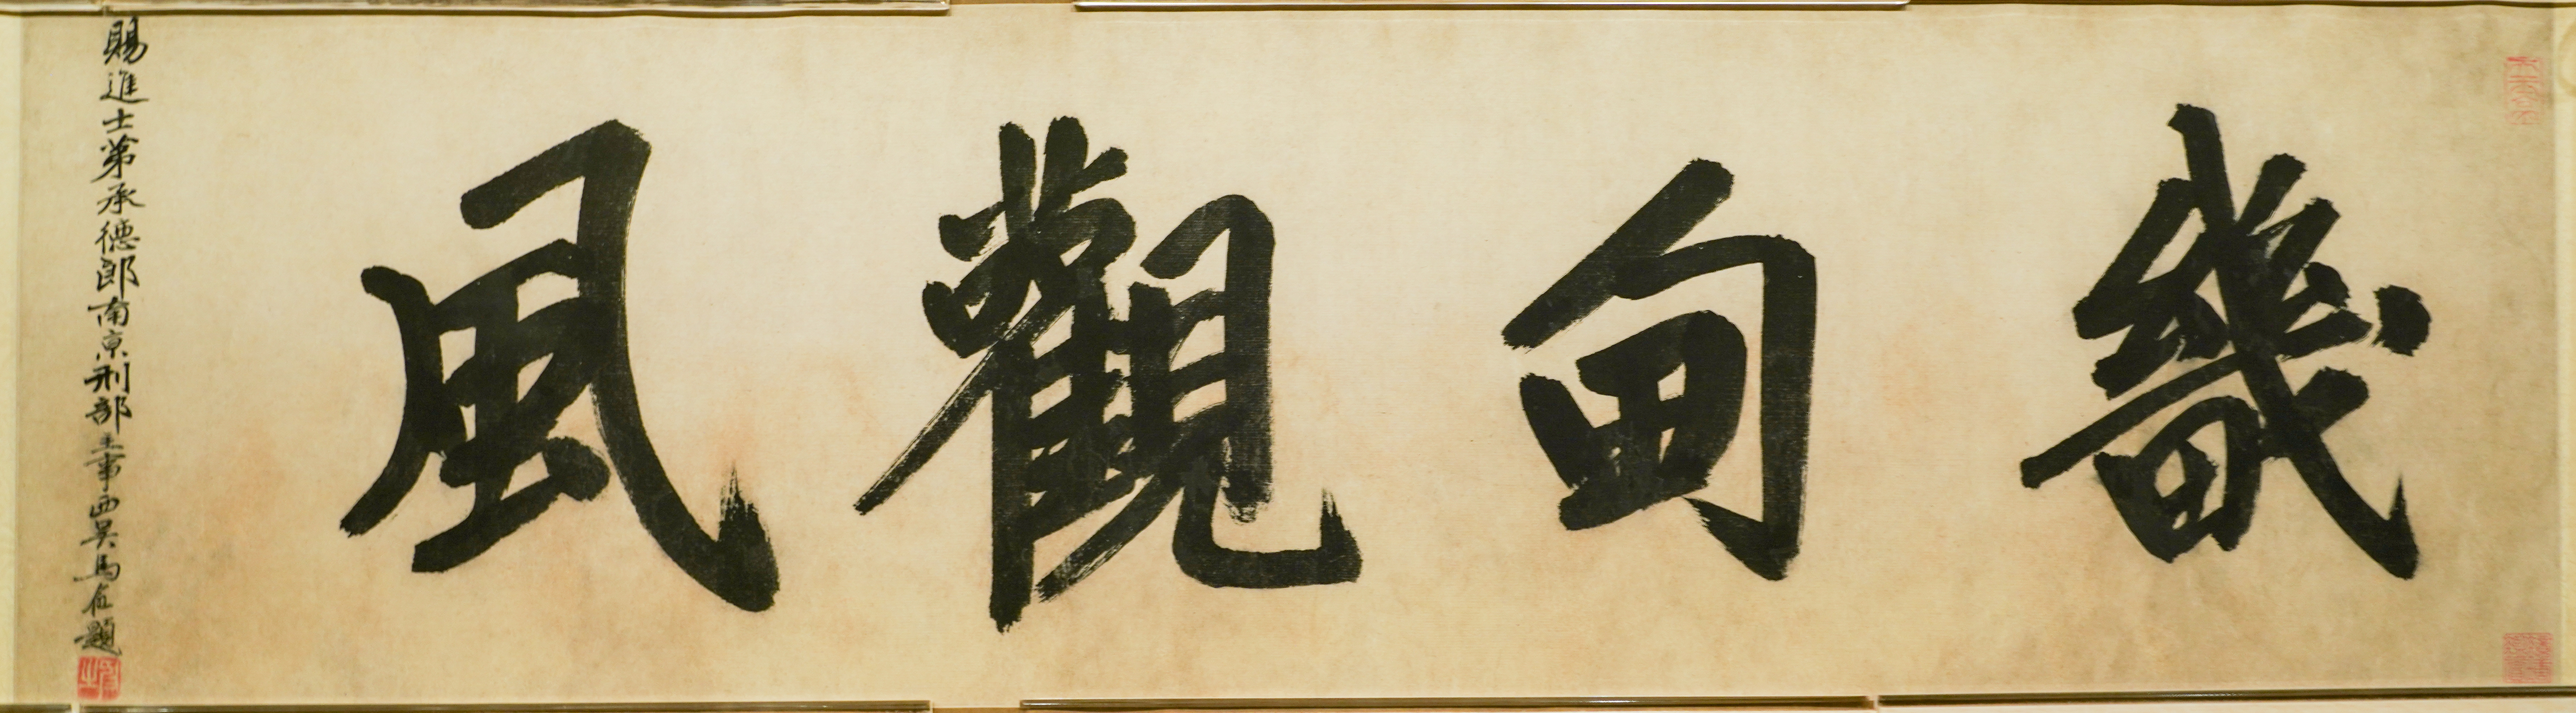 畿甸觀風
賜進士第承德郎南京刑部主事西吳馬 題